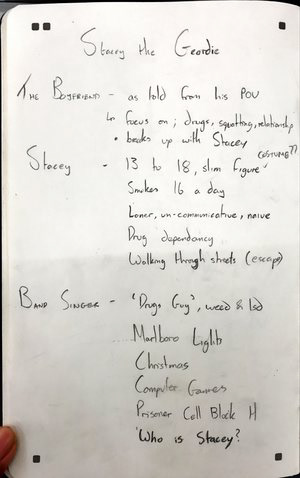 Stacey the Geordie
The Boyfriend - as told from his POV
↳ focus on; drugs, squatting, relationship
• breaks up with Stacey
Stacey - 13 to 18, slim figure (costume??
Smokes 16 a day
Loner, un-communicative, naive
Drug dependancy
Walking through streets (escape)
Band Singer - 'Drugs Guy', weed & lsd
Marlboro Lights
Christmas
Computer Games
Prisoner Cell Block H
'Who is Stacey?